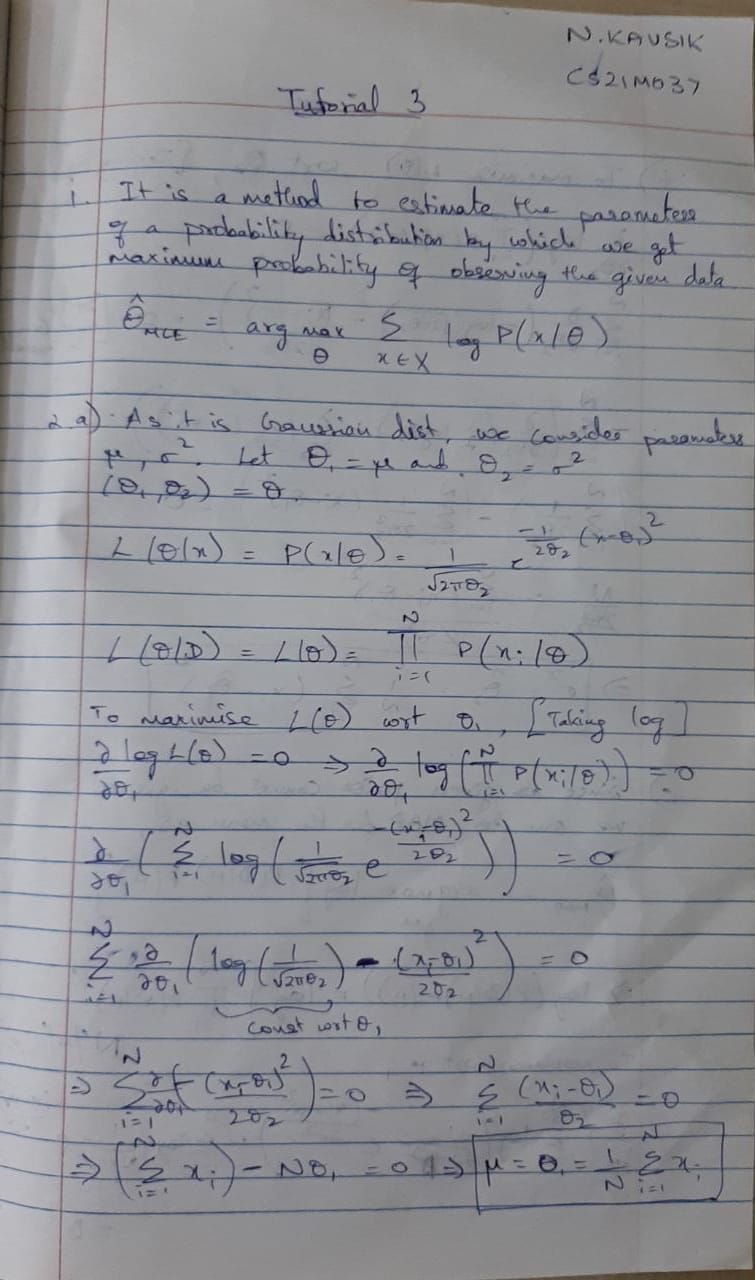 N.KAUSIK
CS21M037
Tutorial 3
1. It is a method to estimate the parameters
of a probability distribution by which we get
maximum probability of observing the given data
θ̂_MLE = arg max_θ Σ_{x∈X} log P(x/θ)
2.a) As it is Gaussian dist, we consider parameters
μ, σ². Let θ₁ = μ and θ₂ = σ²
(θ₁, θ₂) = θ.
L(θ/x) = P(x/θ) = 1/√(2πθ₂) e^{-1/(2θ₂) (x-θ₁)²}
L(θ/D) = L(θ) = Π_{i=1}^{N} P(x_i/θ)
To maximise L(θ) wrt θ₁, [Taking log]
∂/∂θ₁ log L(θ) = 0 ⇒ ∂/∂θ₁ log(Π_{i=1}^{N} P(x_i/θ)) = 0
∂/∂θ₁ (Σ_{i=1}^{N} log(1/√(2πθ₂) e^{-(x_i-θ₁)²/(2θ₂)})) = 0
Σ_{i=1}^{N} ∂/∂θ₁ (log(1/√(2πθ₂)) - (x_i-θ₁)²/(2θ₂)) = 0
const wrt θ₁
⇒ Σ_{i=1}^{N} ∂/∂θ₁ (-(x_i-θ₁)²/(2θ₂)) = 0 ⇒ Σ_{i=1}^{N} (x_i-θ₁)/θ₂ = 0
⇒ (Σ_{i=1}^{N} x_i) - Nθ₁ = 0 ⇒ μ = θ₁ = 1/N Σ_{i=1}^{N} x_i